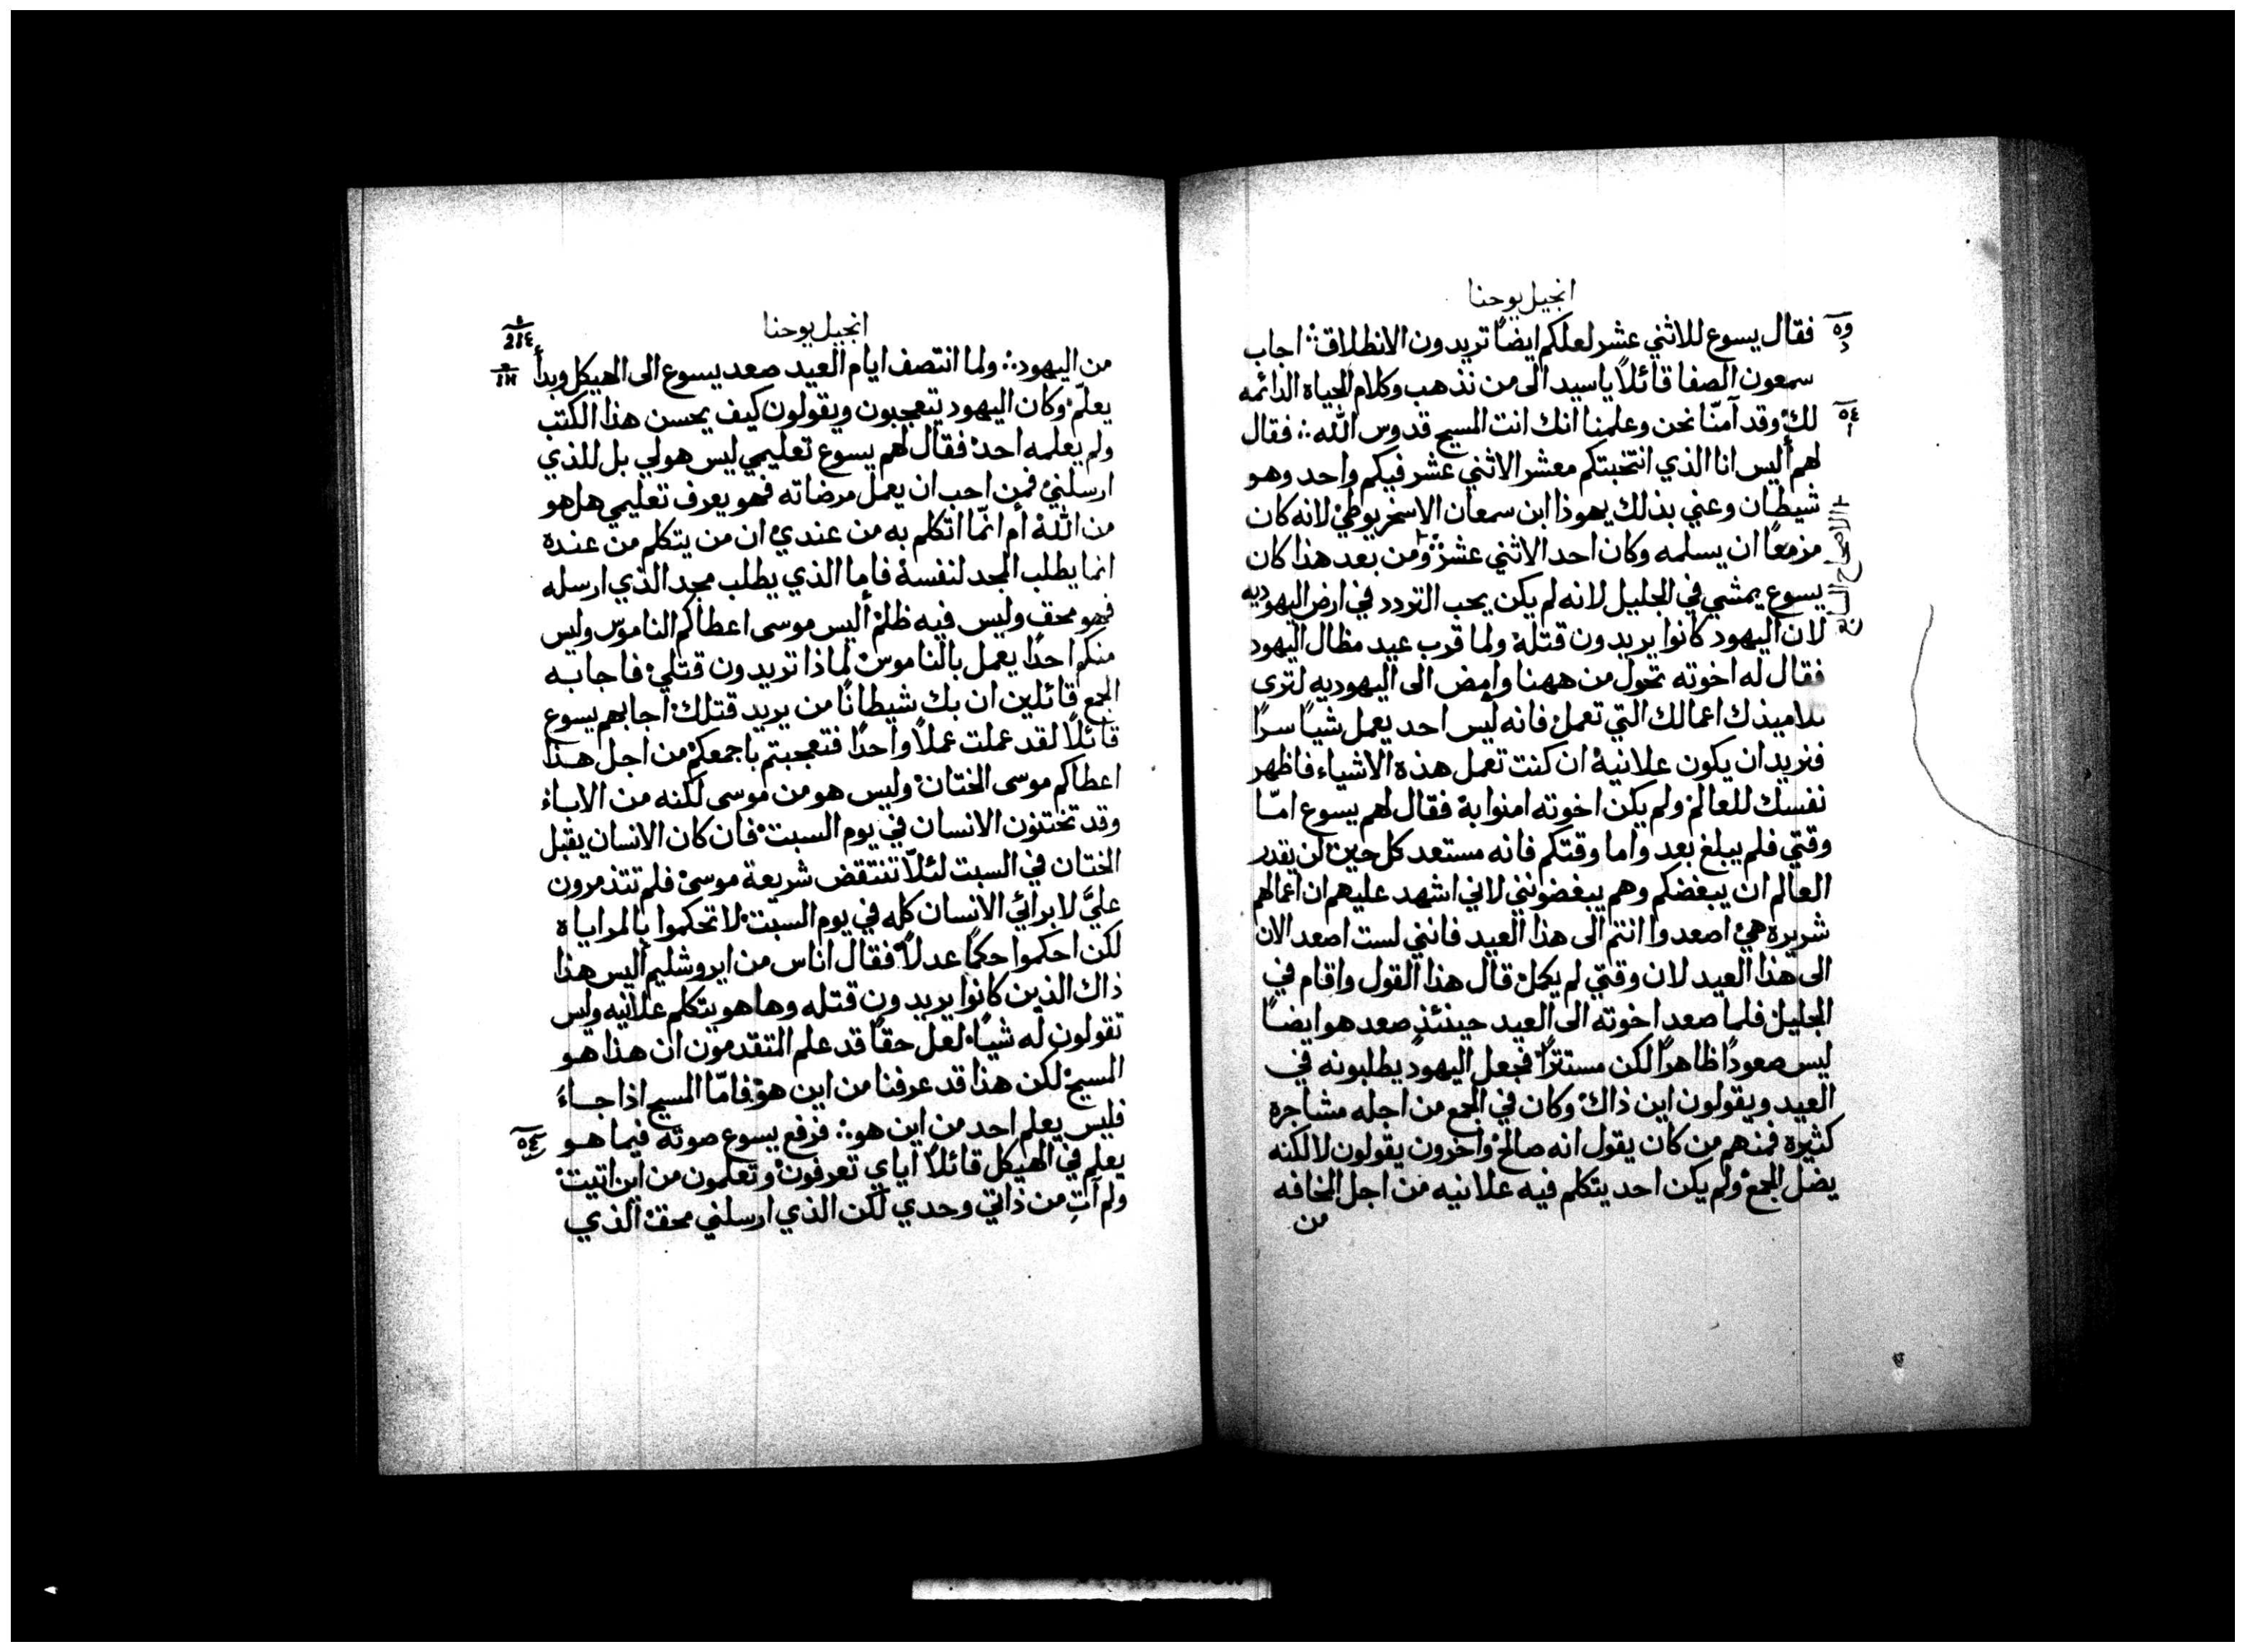 انجيل يوحنا
فقال يسوع للاثني عشر لعلكم ايضًا تريدون الانطلاق؞ اجاب
سمعون الصفا قائلاً ياسيد الى من نذهب وكلام الحياة الدائمه
لك وقد آمنّا نحن وعلمنا انك انت المسيح قدوس الله؞ فقال
لهم أليس انا الذي انتخبتكم معشر الاثني عشر فيكم واحد وهو
شيطان وعني بذلك يهوذا ابن سمعان الاسخريوطي لانه كان
مزمعًا ان يسلمه وكان احد الاثني عشر؞ ومن بعد هذا كان
الاصحاح السابع
يسوع يمشي في الجليل لانه لم يكن يحب التردد في ارض اليهوديه
لان اليهود كانوا يريدون قتله ولما قرب عيد مظال اليهود
فقال له اخوته تحول من ههنا وامض الى اليهوديه لترى
تلاميذك اعمالك التي تعمل فانه ليس احد يعمل شيا سرًا
فيريد ان يكون علانية ان كنت تعمل هذه الاشياء فاظهر
نفسك للعالم ولم يكن اخوته امنوا به فقال لهم يسوع امّا
وقتي فلم يبلغ بعد واما وقتكم فانه مستعد كل حين لن يقدر
العالم ان يبغضكم وهم يبغضونني لاني اشهد عليهم ان اعمالهم
شريره هي اصعدوا انتم الى هذا العيد فانني لست اصعد الان
الى هذا العيد لان وقتي لم يكمل قال هذا القول واقام في
الجليل فلما صعد اخوته الى العيد حينئذٍ صعد هو ايضًا
ليس صعودًا ظاهرًا لكن مستترًا فجعل اليهود يطلبونه في
العيد ويقولون اين ذاك وكان في الجمع من اجله مشاجره
كثيره فمنهم من كان يقول انه صالح واخرون يقولون لا لكنه
يضل الجمع ولم يكن احد يتكلم فيه علانيه من اجل المخافه
من
انجيل يوحنا
من اليهود؞ ولما انتصف ايام العيد صعد يسوع الى الهيكل وبدأ
يعلّم وكان اليهود يتعجبون ويقولون كيف يحسن هذا الكتب
ولم يعلمه احد فقال لهم يسوع تعليمي ليس هو لي بل للذي
ارسلني فمن احب ان يعمل مرضاته فهو يعرف تعليمي هل هو
من الله أم انمّا اتكلم به من عندي ان من يتكلم من عنده
انما يطلب المجد لنفسه فاما الذي يطلب مجد الذي ارسله
فهو محق وليس فيه ظلم أليس موسى اعطاكم الناموس وليس
منكم احدًا يعمل بالناموس لماذا تريدون قتلي فاجابه
الجمع قائلين ان بك شيطانًا من يريد قتلك اجابهم يسوع
قائلاً لقد عملت عملاً واحدًا فتعجبتم باجمعكم من اجل هذا
اعطاكم موسى الختان وليس هو من موسى لكنه من الاباء
وقد تختنون الانسان في يوم السبت فان كان الانسان يقبل
الختان في السبت لئلّا تنتقض شريعة موسى فلم تتذمرون
عليَّ لابرائي الانسان كله في يوم السبت لا تحكموا بالمراياه
لكن احكموا حكمًا عدلاً فقال اناس من ايروشليم أليس هذا
ذاك الذين كانوا يريدون قتله وها هو يتكلم علانيه وليس
تقولون له شيًا لعل حقًا قد علم المتقدمون ان هذا هو
المسيح لكن هذا قد عرفنا من اين هو فامّا المسيح اذا جاء
فليس يعلم احد من اين هو؞ فرفع يسوع صوته فيما هو
يعلم في الهيكل قائلاً اياي تعرفون وتعلمون من اين اتيت
ولم آتِ من ذاتي وحدي لكن الذي ارسلني محق الذي